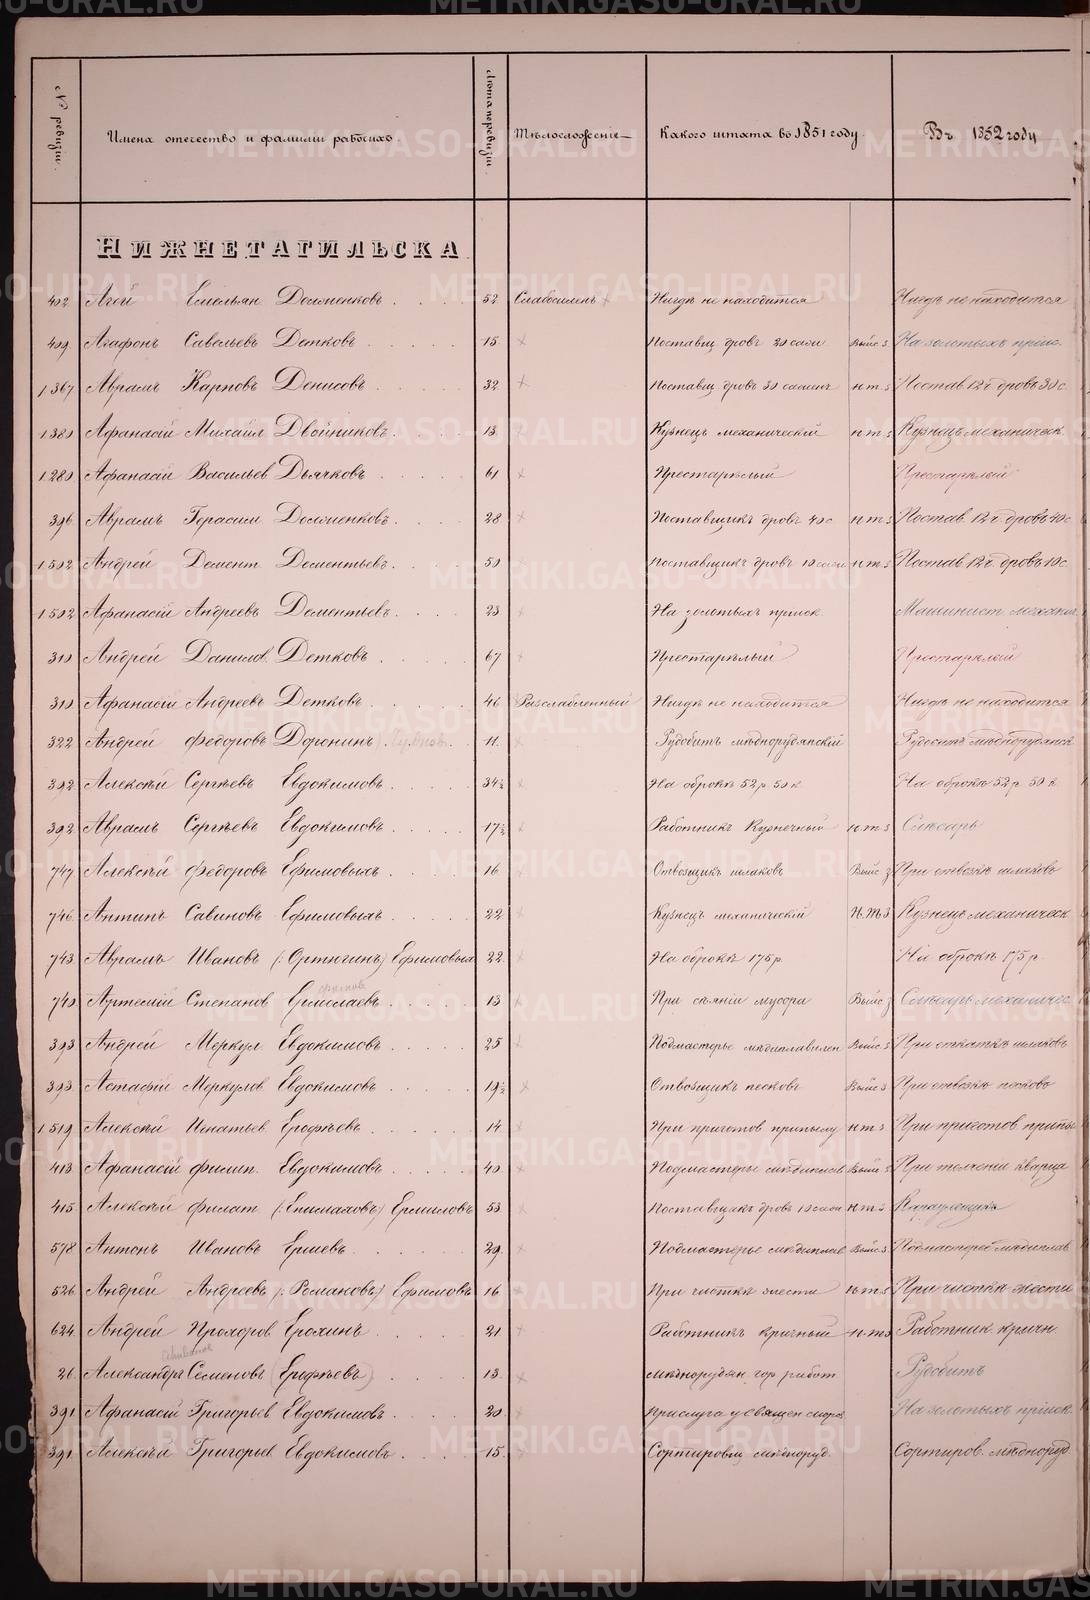 № ревизіи. Имена отечество и фамиліи рабочихъ. Лѣта по ревизіи. Тѣлосложеніе Какого штата въ 1851 году. Въ 1852 году
НИЖНЕТАГИЛЬСКА
402 Агей Емельян Долженковъ 52 Слабосиленъ Нигдѣ не находится Нигдѣ не находится
409 Агафонъ Савельевъ Детковъ 15 Поставщ дровъ 20 саж Выйс з На золотыхъ пріис.
1367 Аврамъ Карповъ Денисовъ 32 Поставщ дровъ 30 сажен н.т.з Постав 12 ч. дровъ 30 с
1380 Афанасій Михайл Двойниковъ 13 Кузнецъ механическій н.т.з Кузнецъ механическ
1280 Афанасій Васильев Дьячковъ 61 Престарѣлый Престарѣлый
396 Аврамъ Герасим Долженковъ 28 Поставщикъ дровъ 40 с н.т.з Постав 12 ч. дровъ 40 с
1502 Андрей Демент Дементьевъ 50 Поставщикъ дровъ 10 саж н.т.з Постав 12 ч. дровъ 10 с.
1502 Афанасій Андреевъ Дементьевъ 23 На золотыхъ пріиск. Машинист механич
310 Андрей Данилов Детковъ 67 Престарѣлый Престарѣлый
310 Афанасій Андреевъ Детковъ 46 Разслабленный Нигдѣ не находится Нигдѣ не находится
322 Андрей Федоровъ Доронинъ 11 Рудобитъ мѣднорудянскій Рудобитъ мѣднорудянск
392 Алексѣй Сергѣевъ Евдокимовъ 34½ На оброкѣ 52 р. 50 к На оброкѣ 52 р. 50 к
392 Аврамъ Сергѣевъ Евдокимовъ 17½ Работникъ Кузнечный н.т.з Слѣсарь
747 Алексѣй Федоровъ Ефимовыхъ 16 Отвозщикъ шлаковъ Выйс з При отвозкѣ шлаковъ
746 Антипъ Савиновъ Ефимовыхъ 22 Кузнецъ механическій Н.Т.З Кузнецъ механическ
743 Аврамъ Ивановъ (: Ортюгинъ) Ефимовых 22 На оброкѣ 175 р. На оброкѣ 175 р.
740 Артемій Степанов Ермилаевъ 13 При сѣяніи мусора Выйс з Слѣсарь механичес.
393 Андрей Меркул Евдокимовъ 25 Подмастерье мѣдиплавилен Выйс з При откаткѣ шлаковъ
393 Астафій Меркулов Евдокимовъ 19½ Отвозщикъ песковъ Выйс з При отвозкѣ песково
1519 Алексѣй Игнатьев Ерофѣевъ 14 При приготов припасу н.т.з При приготов припас
413 Афанасій Филип. Евдокимовъ 40 Подмастерье мѣдиплав Выйс з При толченіи Кварца
415 Алексѣй Филат (: Епимаховъ) Ермиловъ 53 Поставщикъ дровъ 10 саж Н.т.з Караульщикъ
578 Антонъ Ивановъ Ершевъ 29 Подмастерье мѣдиплав Выйс з Подмастерье мѣдиплав
526 Андрей Андреевъ (: Романовъ) Ефимовъ 16 При чисткѣ жести н.т.з При чисткѣ жести
624 Андрей Прохоров Ерохинъ 21 Работникъ кричный н.т.з Работник. кричн.
26 Александръ Семеновъ (Ерофѣевъ) 13 мѣднорудян. гор. работ. Рудобитъ
391 Афанасій Григорьев Евдокимовъ 20 Прислуга у Священ На золотыхъ пріиск.
391 Алексѣй Григорьев Евдокимовъ 15 Сортировщ мѣдноруд. Сортиров. мѣдноруд
METRIKI.GASO-URAL.RU